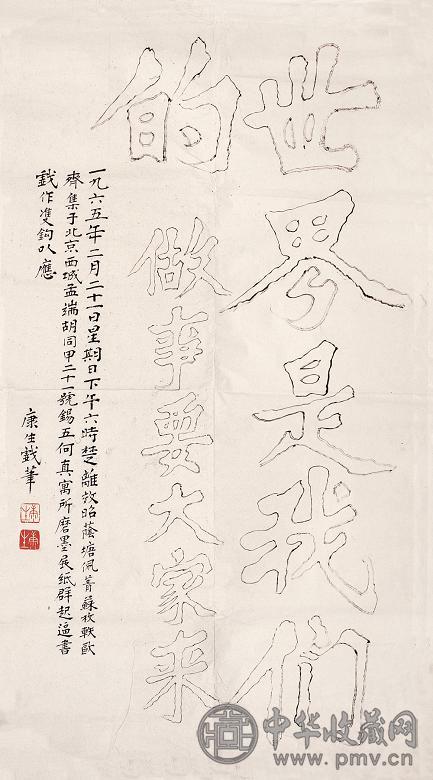 世界是我们
的 做事要大家来
一九六五年二月二十一日星期日下午六时楚离效昭蔭塘佩菁蘇枚軼歐
齊集于北京西城孟端胡同甲二十一號錫五何真寓所磨墨展纸群起逼書
戲作雙鈎以應
康生戲筆
中华收藏网
www.pmv.cn